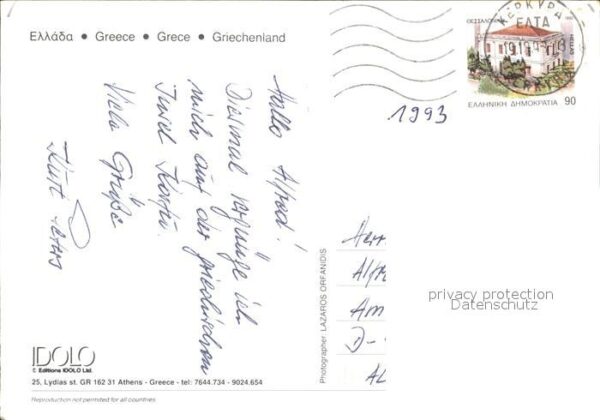 Ελλάδα • Greece • Grece • Griechenland
ΚΕΡΚΥΡΑ
ΕΛΤΑ
ΘΕΣΣΑΛΟΝΙΚΗ
HELLAS
ΕΛΛΗΝΙΚΗ ΔΗΜΟΚΡΑΤΙΑ 90
1993
Hallo Alfred!
Diesmal vergnüge ich
mich auf der griechischen
Insel Korfu.
Viele Grüße
Kurt Peters
Photographer: LAZAROS ORFANIDIS
Herr
Alfr
Am
D-
AL
privacy protection
Datenschutz
IDOLO
© Editions IDOLO Ltd.
25, Lydias st. GR 162 31 Athens - Greece - tel: 7644.734 - 9024.654
Reproduction not permited for all countries